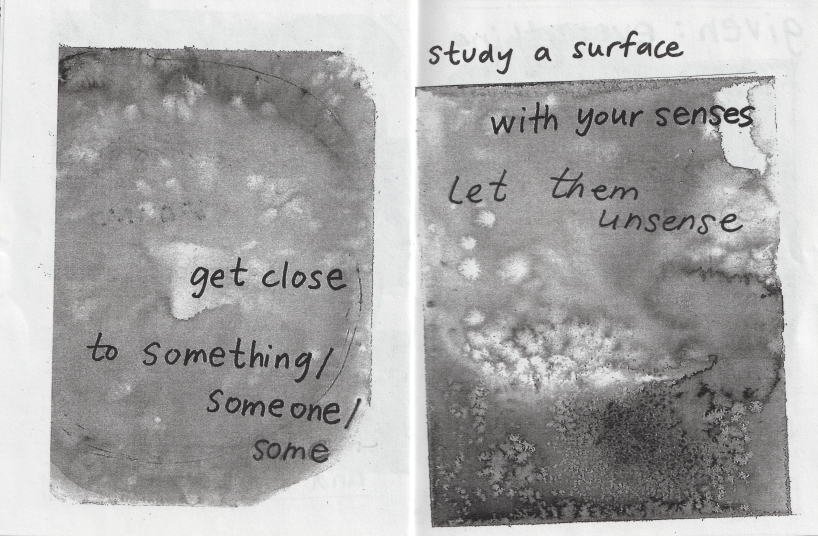 get close
to something/
someone/
some
study a surface
with your senses
Let them
unsense